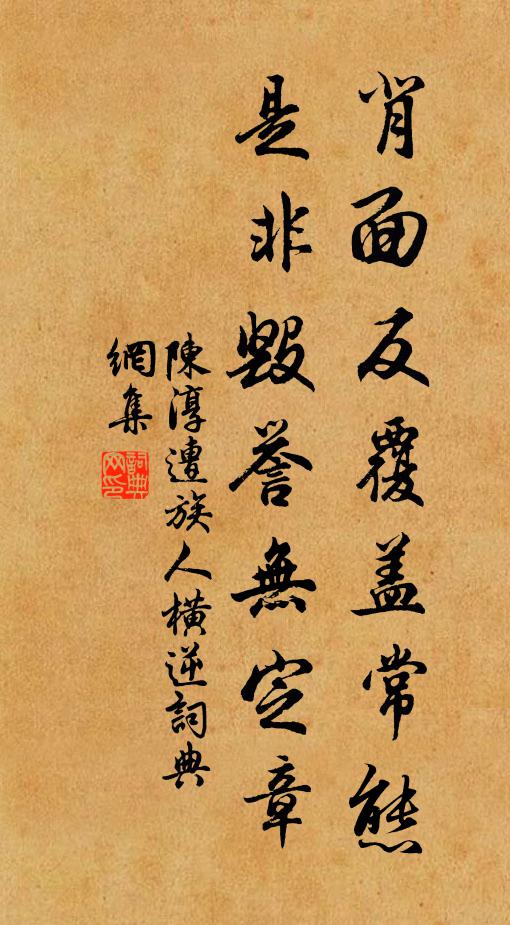 背面反覆盖常態
是非毀譽無定章
陳淳遭族人橫逆詞典
網集
詞典網印